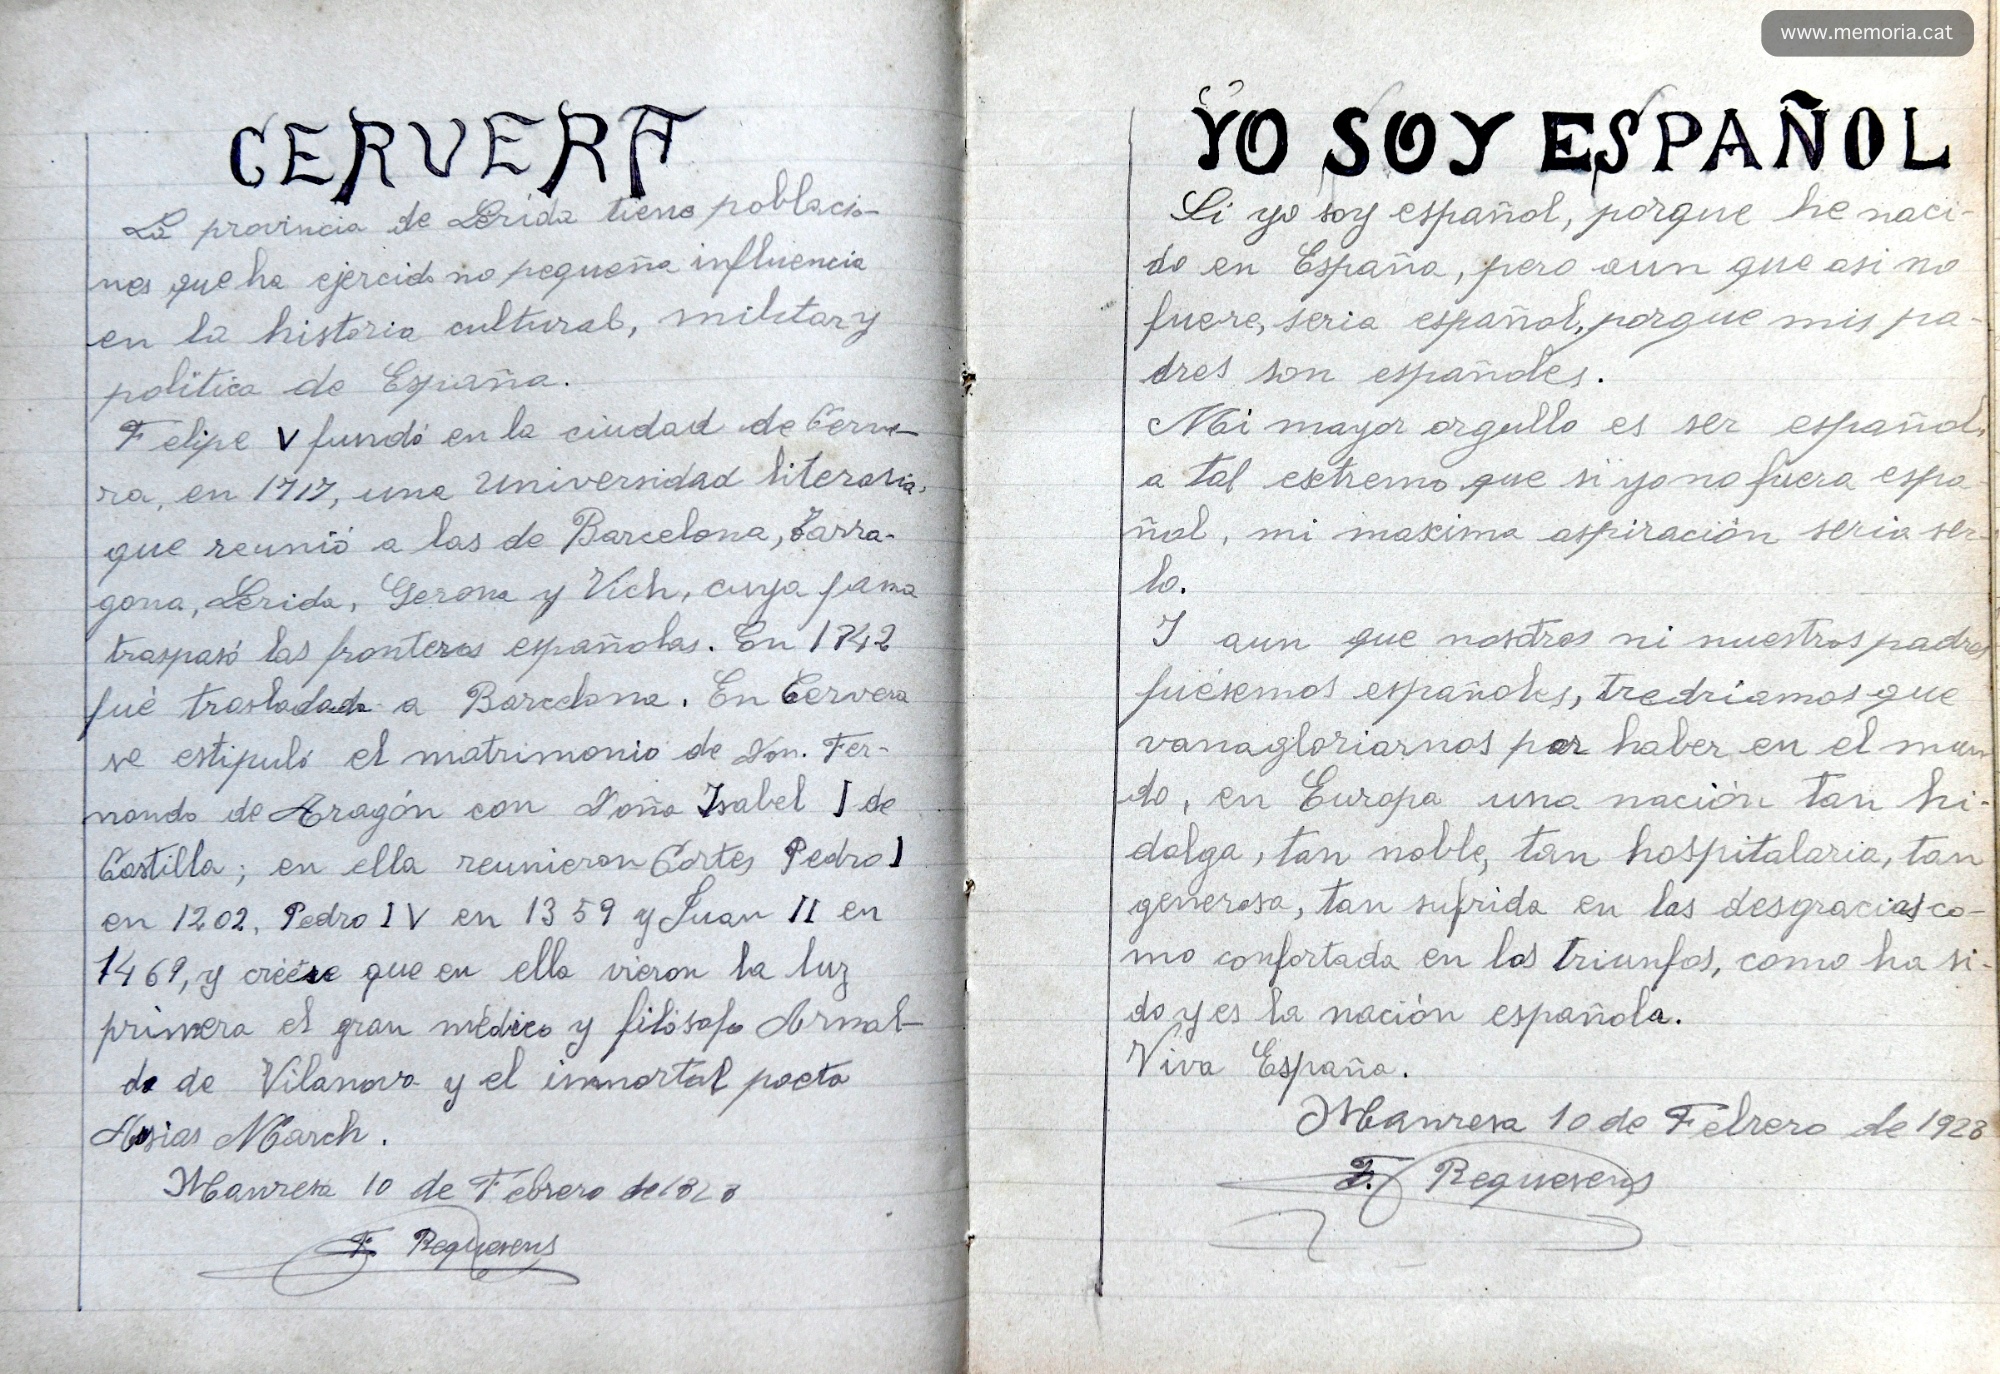 www.memoria.cat
CERVERA
La provincia de Lérida tiene poblacio-
nes que ha ejercido no pequeña influencia
en la historia cultural, militar y
politica de España.
Felipe V fundó en la ciudad de Cerve-
ra, en 1717, una Universidad literaria,
que reunió a las de Barcelona, Tarra-
gona, Lerida, Gerona y Vich, cuya fama
traspasó las fronteras españolas. En 1842
fué trasladada a Barcelona. En Cervera
se estipuló el matrimonio de Don. Fer-
nando de Aragón con Doña Isabel I de
Castilla; en ella reunieron Cortes Pedro I
en 1202, Pedro IV en 1359 y Juan II en
1469, y creése que en ella vieron la luz
primera el gran médico y filósofo Arnal-
do de Vilanova y el inmortal poeta
Ausias March.
Manresa 10 de Febrero de
F. Requesens
YO SOY ESPAÑOL
Si yo soy español, porque he naci-
do en España, pero aun que asi no
fuere, seria español, porque mis pa-
dres son españoles.
Mi mayor orgullo es ser español,
a tal extremo que si yo no fuera espa
ñol, mi maxima aspiración seria ser-
lo.
I aun que nosotros ni nuestros padres
fuésemos españoles, tredriamos que
vanagloriarnos por haber en el mun
do, en Europa una nación tan hi-
dalga, tan noble, tan hospitalaria, tan
generosa, tan sufrida en las desgracias co-
mo confortada en los triunfos, como ha si-
do y es la nación española.
Viva España.
Manresa 10 de Febrero de 1928
F. Requesens